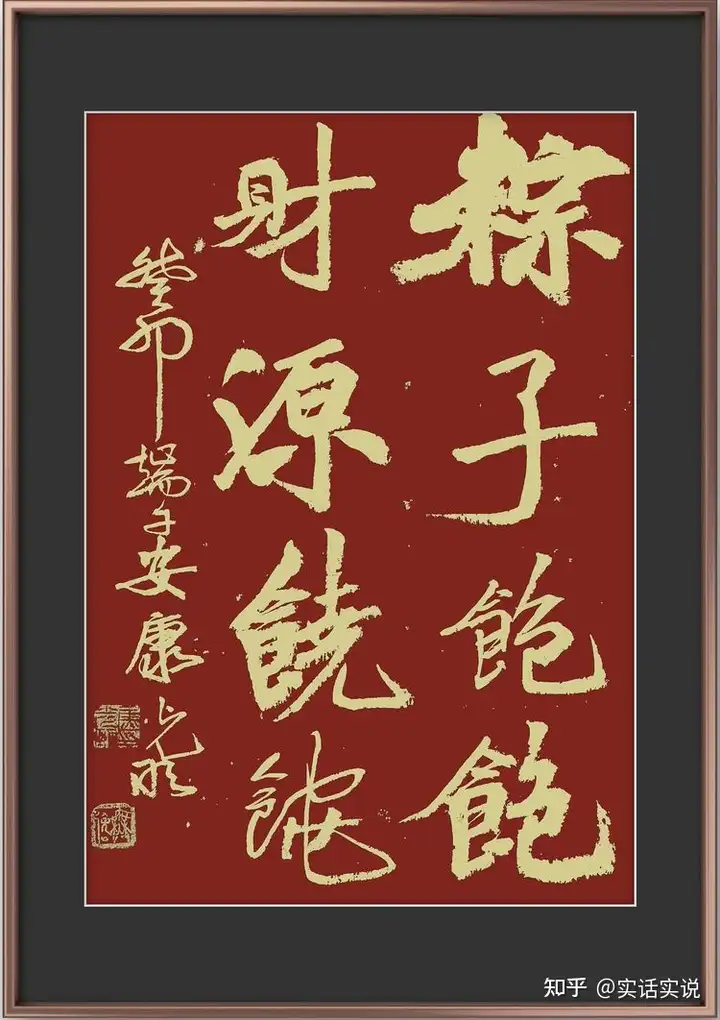 粽子飽飽
財源饒饒
癸卯端午安康
知乎 @实话实说